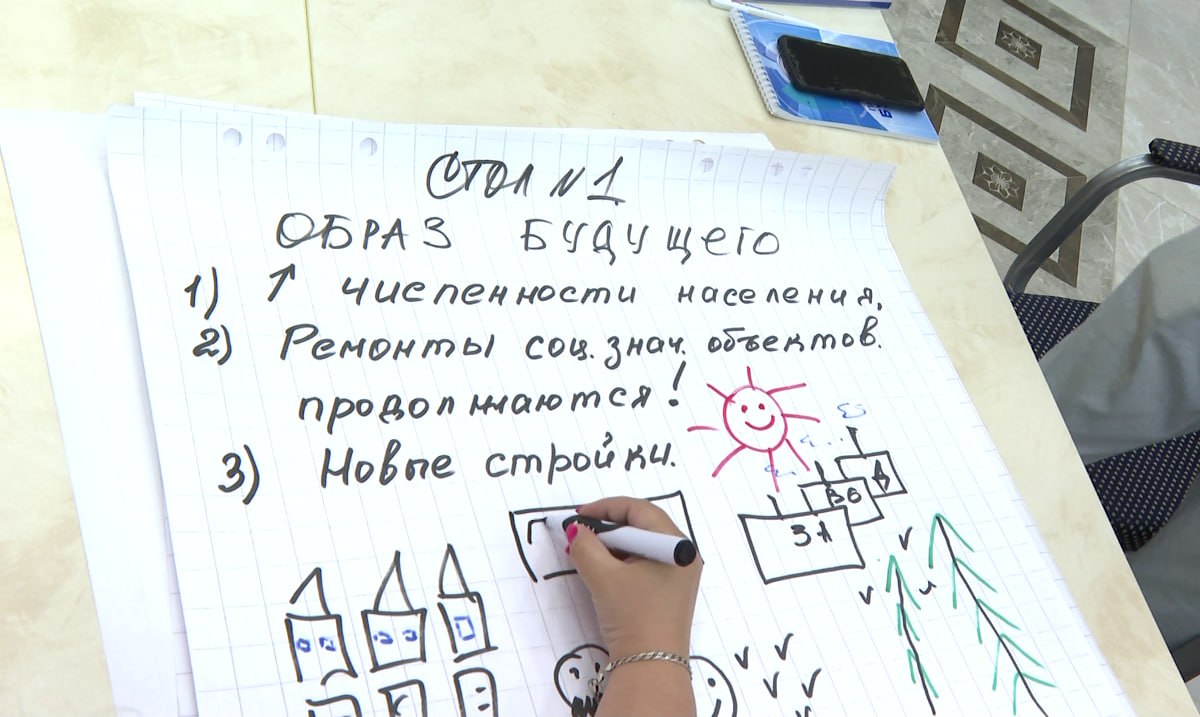 СТОЛ N 1
ОБРАЗ БУДУЩЕГО
1) ↑ численности населения.
2) Ремонты соц. знач. объектов.
продолжаются!
3) Новые стройки.